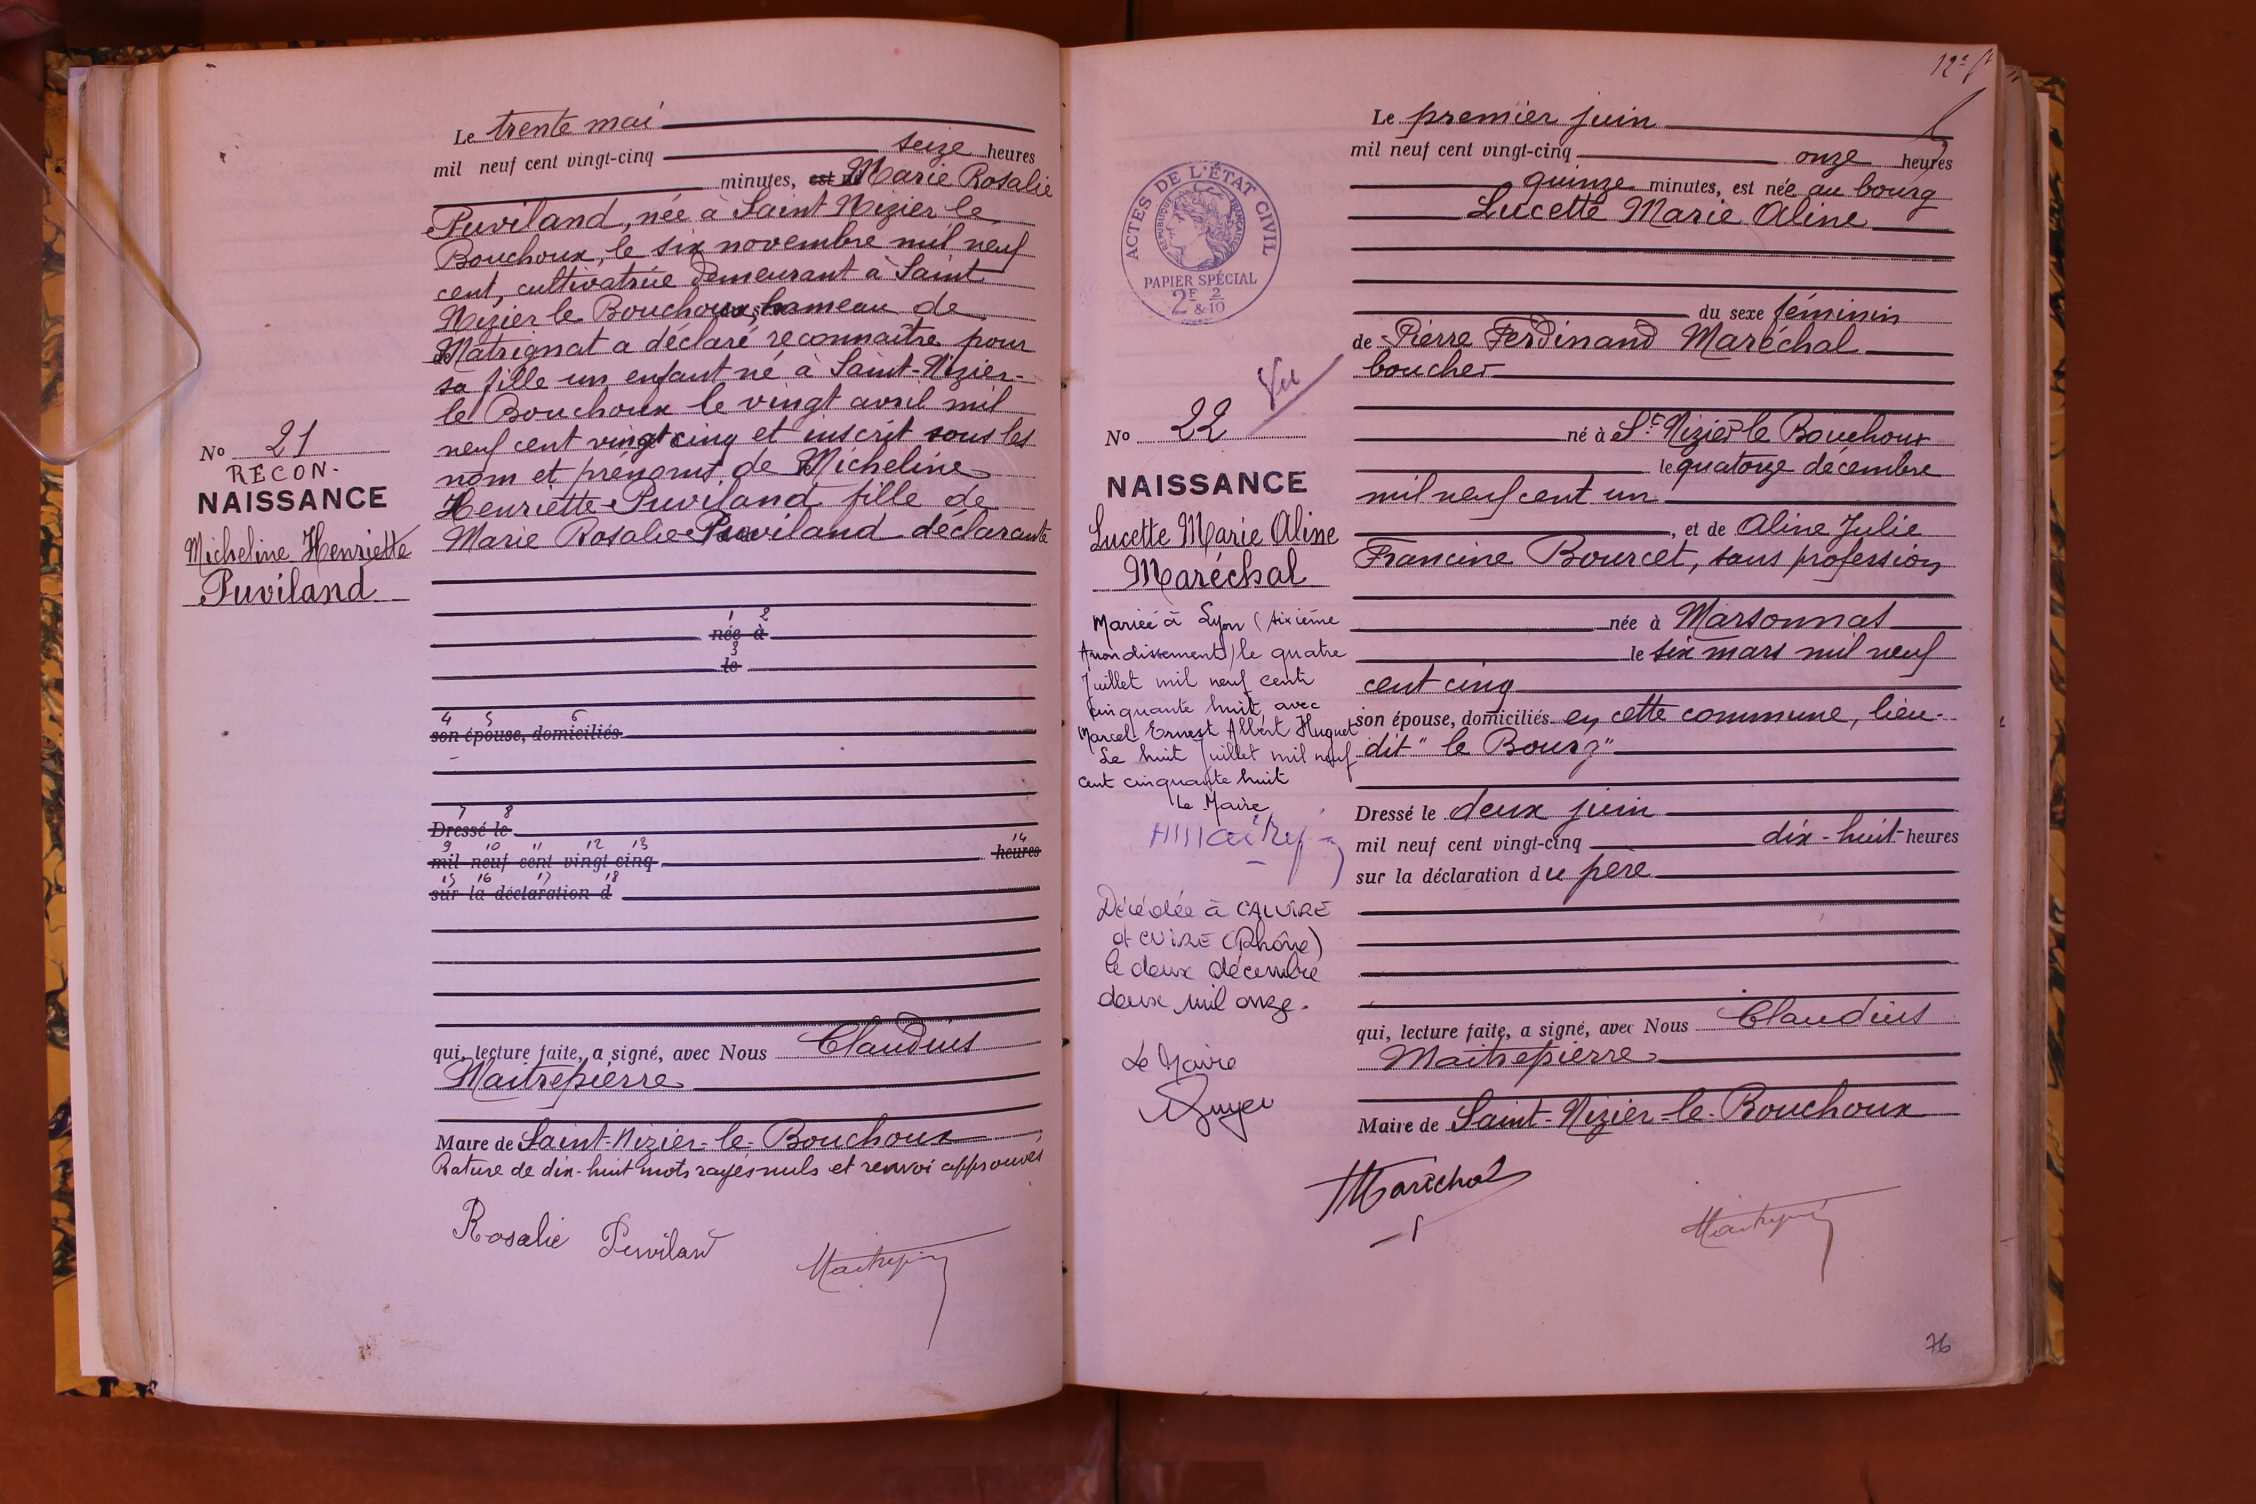 Le trente mai
mil neuf cent vingt-cinq seize heures
minutes, est né Marie Rosalie
Puviland, née à Saint Nizier le
Bouchoux, le six novembre mil neuf
cent, cultivatrice demeurant à Saint
Nizier le Bouchoux, hameau de
Matrignat a déclaré reconnaître pour
sa fille un enfant né à Saint-Nizier-
le Bouchoux le vingt avril mil
neuf cent vingt cinq et inscrit sous les
nom et prénoms de Micheline
Henriette Puviland fille de
Marie Rosalie Puviland déclarante
No 21
RECON.
NAISSANCE
Micheline Henriette
Puviland
1 2
née à
3
le
4 5 6
son épouse, domiciliés
7 8
Dressé le
9 10 11 12 13 14
mil neuf cent vingt-cinq heures
15 16 17 18
sur la déclaration d
qui, lecture faite, a signé, avec Nous Claudius
Maitrepierre
Maire de Saint-Nizier-le-Bouchoux
Rature de dix-huit mots rayés nuls et renvoi approuvés
Rosalie Puviland
Maitrepierre
Le premier juin
mil neuf cent vingt-cinq onze heures
quinze minutes, est née au bourg
Lucette Marie Aline
du sexe féminin
de Pierre Ferdinand Maréchal
boucher
né à St Nizier le Bouchoux
le quatorze décembre
mil neuf cent un
, et de Aline Julie
Francine Bourcet, sans profession
née à Marsonnas
le six mars mil neuf
cent cinq
son épouse, domiciliés en cette commune, lieu-
dit "le Bourg"
Dressé le deux juin
mil neuf cent vingt-cinq dix-huit heures
sur la déclaration du père
qui, lecture faite, a signé, avec Nous Claudius
Maitrepierre
Maire de Saint-Nizier-le-Bouchoux
Maréchal
Maitrepierre
ACTES DE L'ÉTAT CIVIL
RÉPUBLIQUE FRANÇAISE
PAPIER SPÉCIAL
2F 2
& 10
Vu
No 22
NAISSANCE
Lucette Marie Aline
Maréchal
Mariée à Lyon (sixième
Arrondissement) le quatre
Juillet mil neuf cent
cinquante huit avec
Marcel Ernest Albert Huguet
Le huit Juillet mil neuf
cent cinquante huit
Le Maire
Décédée à CALUIRE
et CUIRE (Rhône)
le deux décembre
deux mil onze.
Le Maire
76